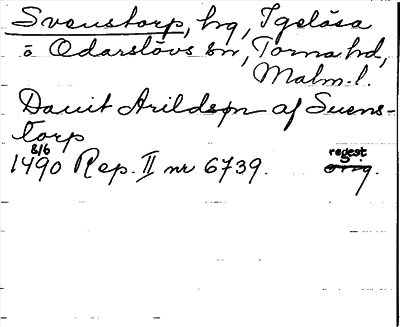 Svenstorp, hg, Igelösa
o Odarslövs sn, Torna hd,
Malm. l.
Dauit Arildsøn af Suens-
torp
8/6
1490 Rep. II nr 6739. regest
orig.